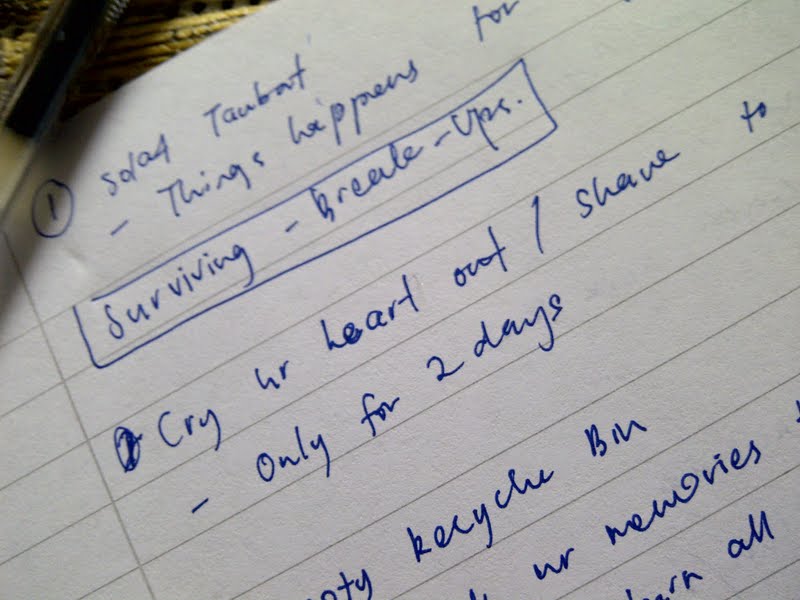 ① Solat Taubat
- Things happens for
Surviving - Break-Ups.
Cry ur heart out / share to
- Only for 2 days
Recycle Bin
ur memories
all